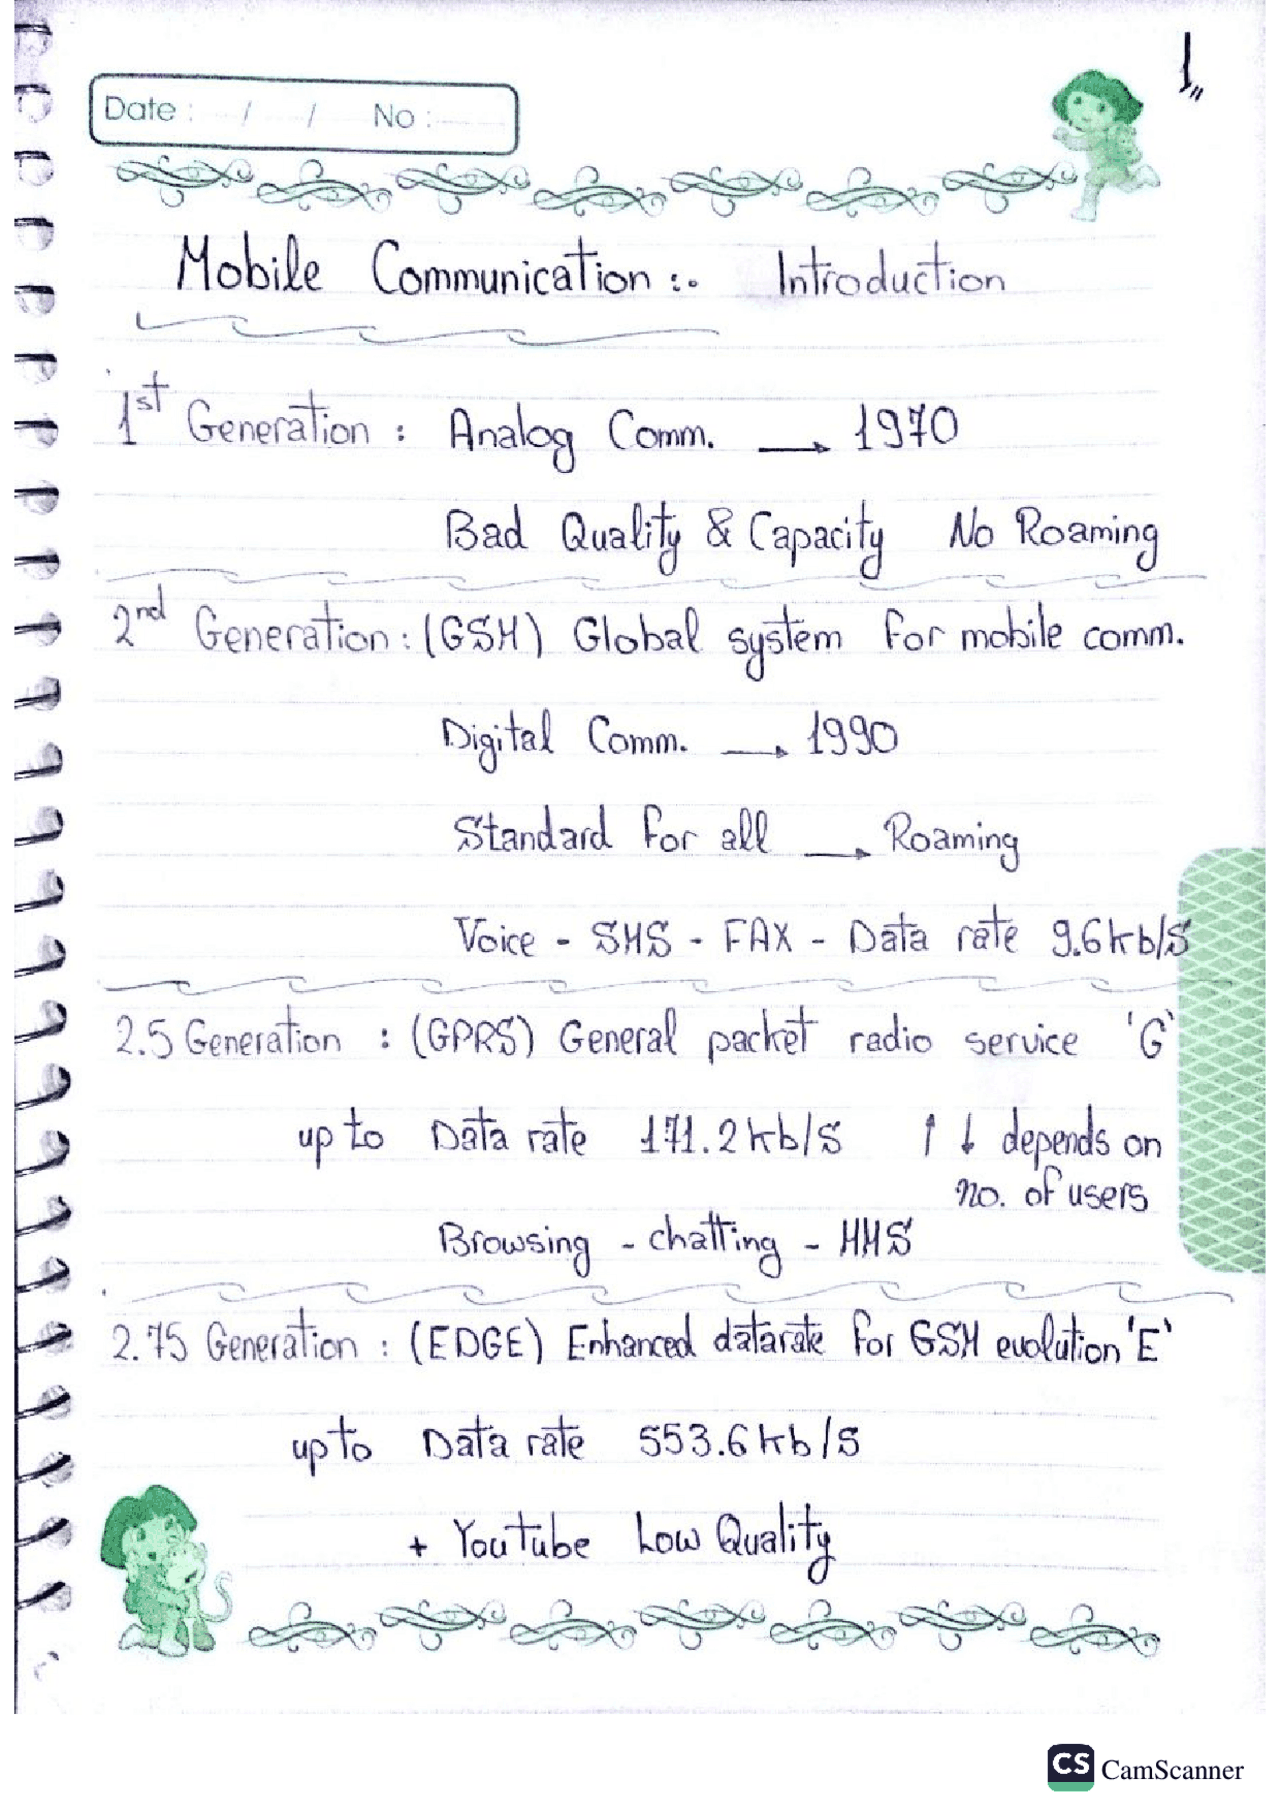 1,,
Date : / / No :
Mobile Communication :. Introduction
1st Generation : Analog Comm. → 1970
Bad Quality & Capacity No Roaming
2nd Generation : (GSM) Global system for mobile comm.
Digital Comm. → 1990
Standard for all → Roaming
Voice - SMS - FAX - Data rate 9.6 kb/s
2.5 Generation : (GPRS) General packet radio service 'G'
up to Data rate 171.2 kb/s ↑ ↓ depends on
no. of users
Browsing - chatting - MMS
2.75 Generation : (EDGE) Enhanced datarate for GSM evolution 'E'
up to Data rate 553.6 kb/s
+ Youtube Low Quality
CS CamScanner